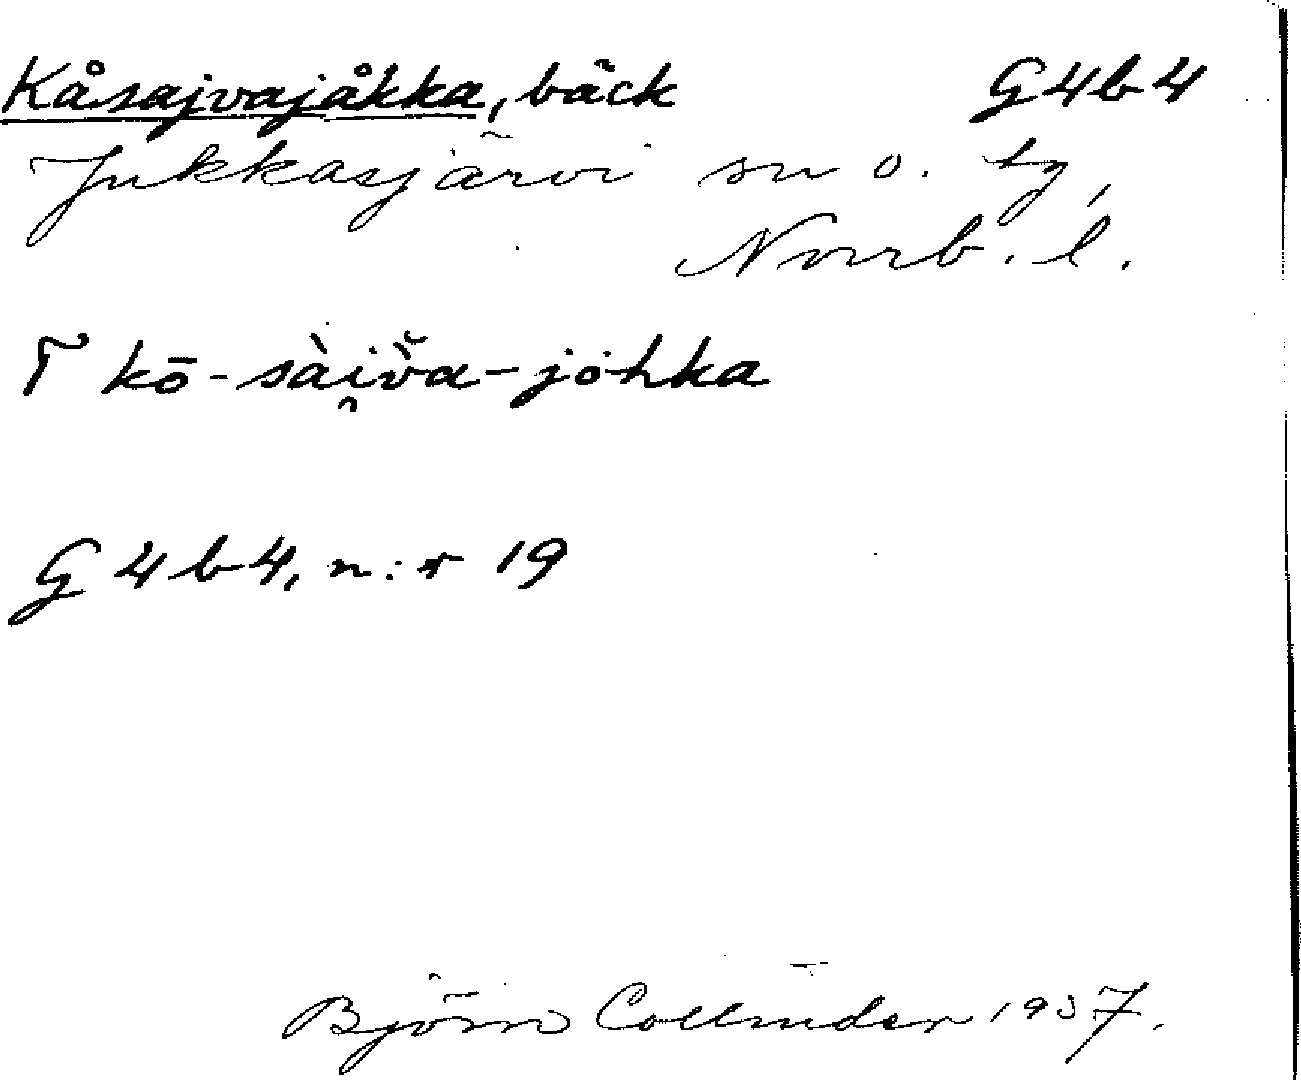 Kåsajvajåkka, bäck G4b4
Jukkasjärvi sn o. tg,
Norrb. l.
T kō-sài̯v̆a-jòhka
G4b4, n:r 19
Björn Collinder 1937.